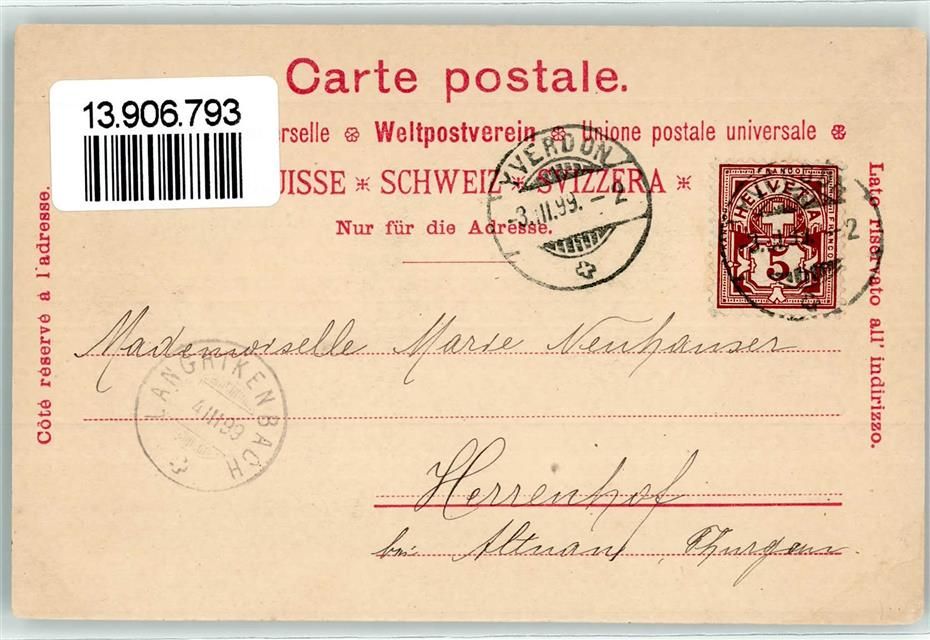 Carte postale.
13.906.793
erselle ❊ Weltpostverein ❊ Unione postale universale ❊
UISSE * SCHWEIZ * SVIZZERA *
Nur für die Adresse.
Côté réservé à l'adresse.
Lato riservato all' indirizzo.
YVERDON
-3.III.99.-2
FRANCO
HELVETIA
5
Mademoiselle Marie Neuhauser
LANGRIKENBACH
4 III 99
Herrenhof
bei Altnau, Thurgau.